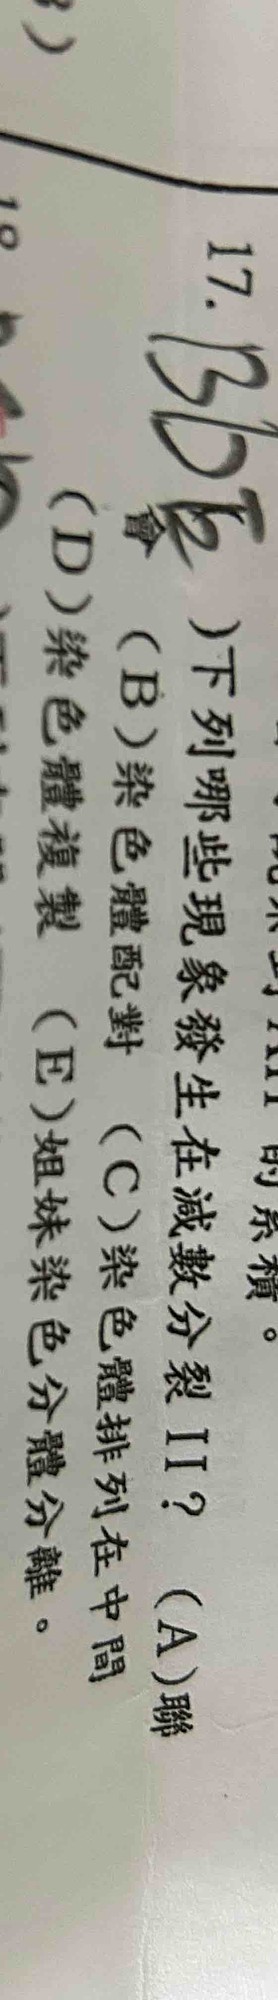 的累積。
17. BDE )下列哪些現象發生在減數分裂II？ (A)聯
會 (B)染色體配對 (C)染色體排列在中間
(D)染色體複製 (E)姐妹染色分體分離。
18.